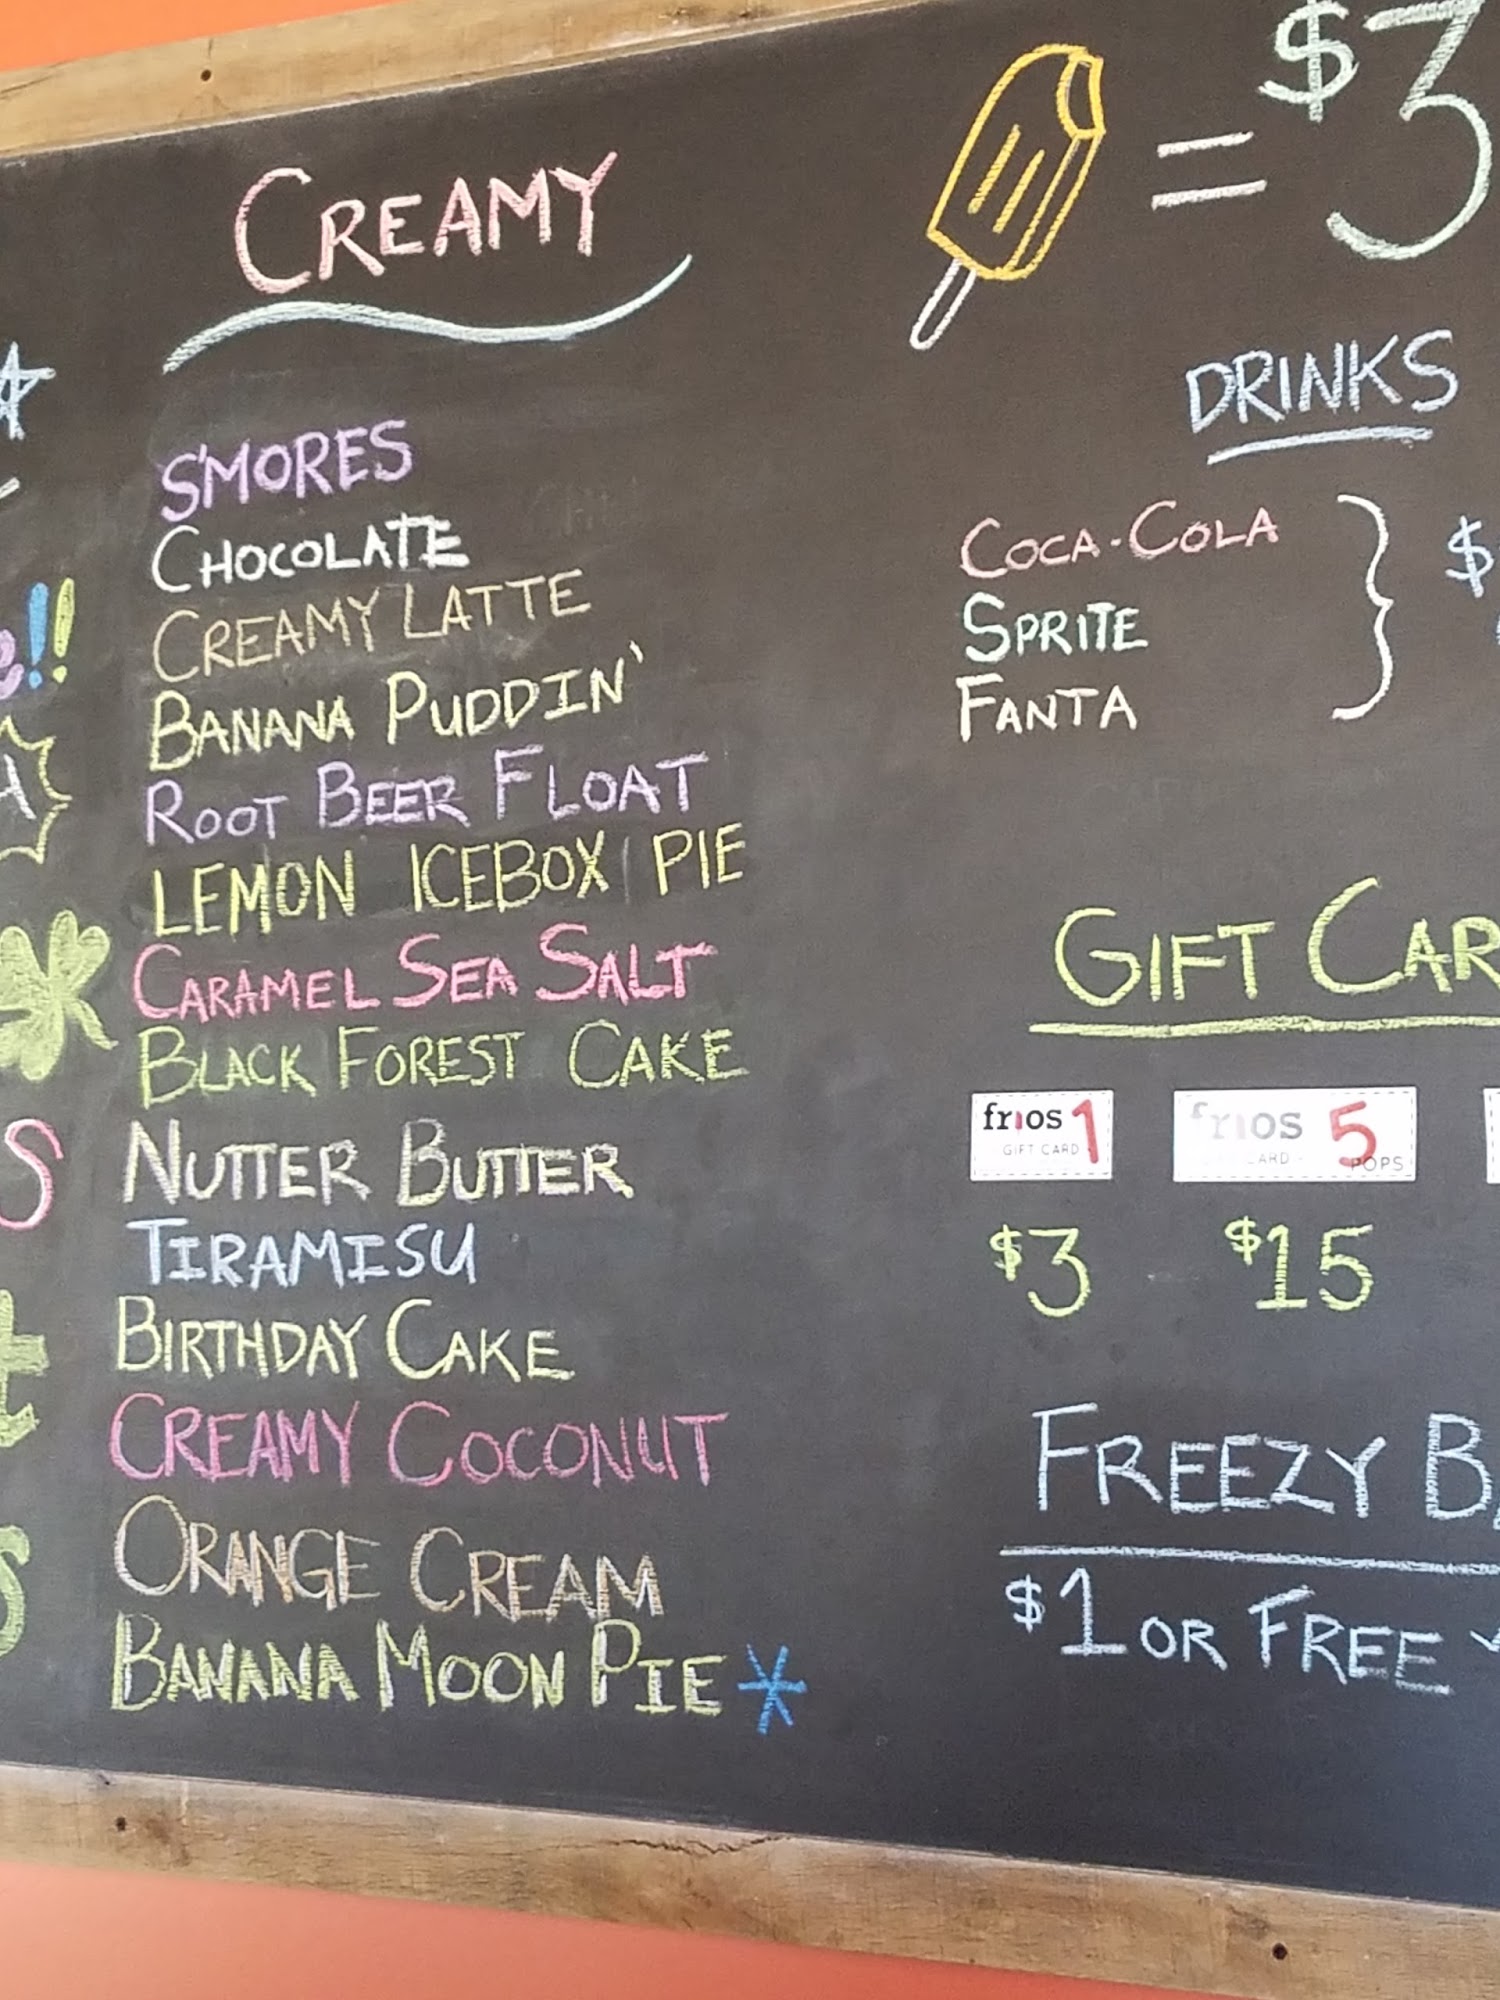 CREAMY
S'MORES
CHOCOLATE
CREAMY LATTE
BANANA PUDDIN'
ROOT BEER FLOAT
LEMON ICEBOX PIE
CARAMEL SEA SALT
BLACK FOREST CAKE
NUTTER BUTTER
TIRAMISU
BIRTHDAY CAKE
CREAMY COCONUT
ORANGE CREAM
BANANA MOON PIE *
= $3
DRINKS
COCA-COLA
SPRITE
FANTA
$
GIFT CAR
frios 1
GIFT CARD
frios 5
CARD POPS
$3 $15
FREEZY BA
$1 OR FREE